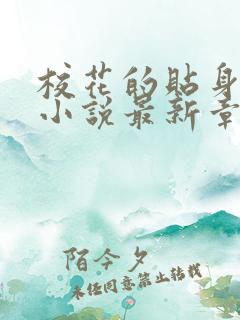 校花的贴身
小说最新章
陌今夕
未经同意禁止转载